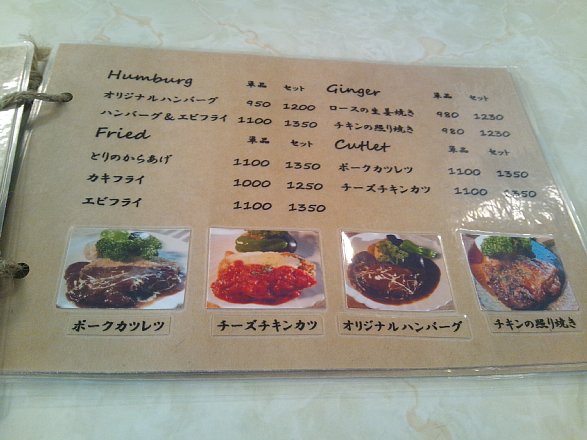 Humburg 単品 セット
オリジナルハンバーグ 950 1200
ハンバーグ&エビフライ 1100 1350
Fried 単品 セット
とりのからあげ 1100 1350
カキフライ 1000 1250
エビフライ 1100 1350
Ginger 単品 セット
ロースの生姜焼き 980 1230
チキンの照り焼き 980 1230
Cutlet 単品 セット
ポークカツレツ 1100 1350
チーズチキンカツ 1100 1350
ポークカツレツ
チーズチキンカツ
オリジナルハンバーグ
チキンの照り焼き